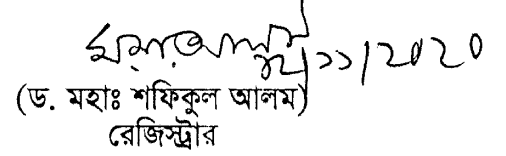 ১২/১১/২০২০
(ড. মহাঃ শফিকুল আলম)
রেজিস্ট্রার